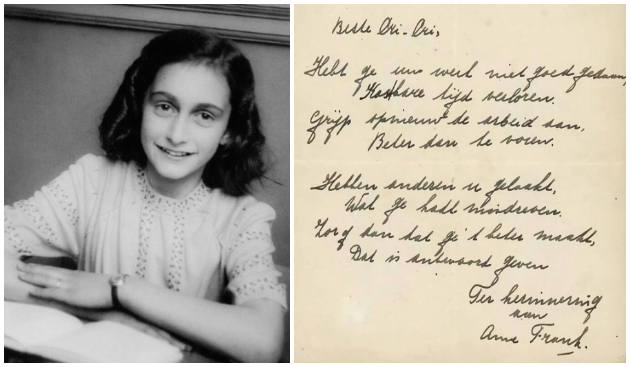 Beste Cri-Cri,
Hebt ge uw werk niet goed gedaan,
Kostbare tijd verloren.
Grijp opnieuw de arbeid aan,
Beter dan te voren.
Hebben anderen u gelaakt,
Wat ge hadt misdreven.
Zorg dan dat ge 't beter maakt,
Dat is antwoord geven
Ter herinnering
aan
Anne Frank.